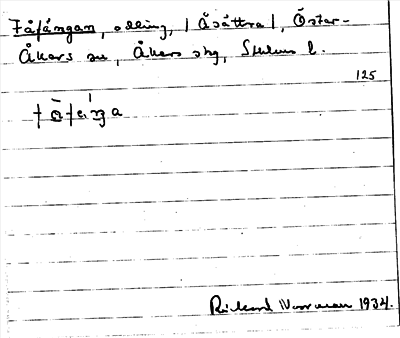 Fåfängan, odling, (Åsättra), Öster-
Åkers sn, Åkers skg, Sthlms l.
125
Rickard Norman 1934.